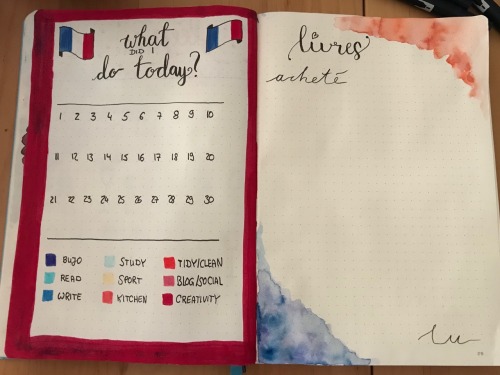 what
DID I
do today?
1 2 3 4 5 6 7 8 9 10
11 12 13 14 15 16 17 18 19 20
21 22 23 24 25 26 27 28 29 30
BUJO STUDY TIDY/CLEAN
READ SPORT BLOG/SOCIAL
WRITE KITCHEN CREATIVITY
livres
acheté
lu